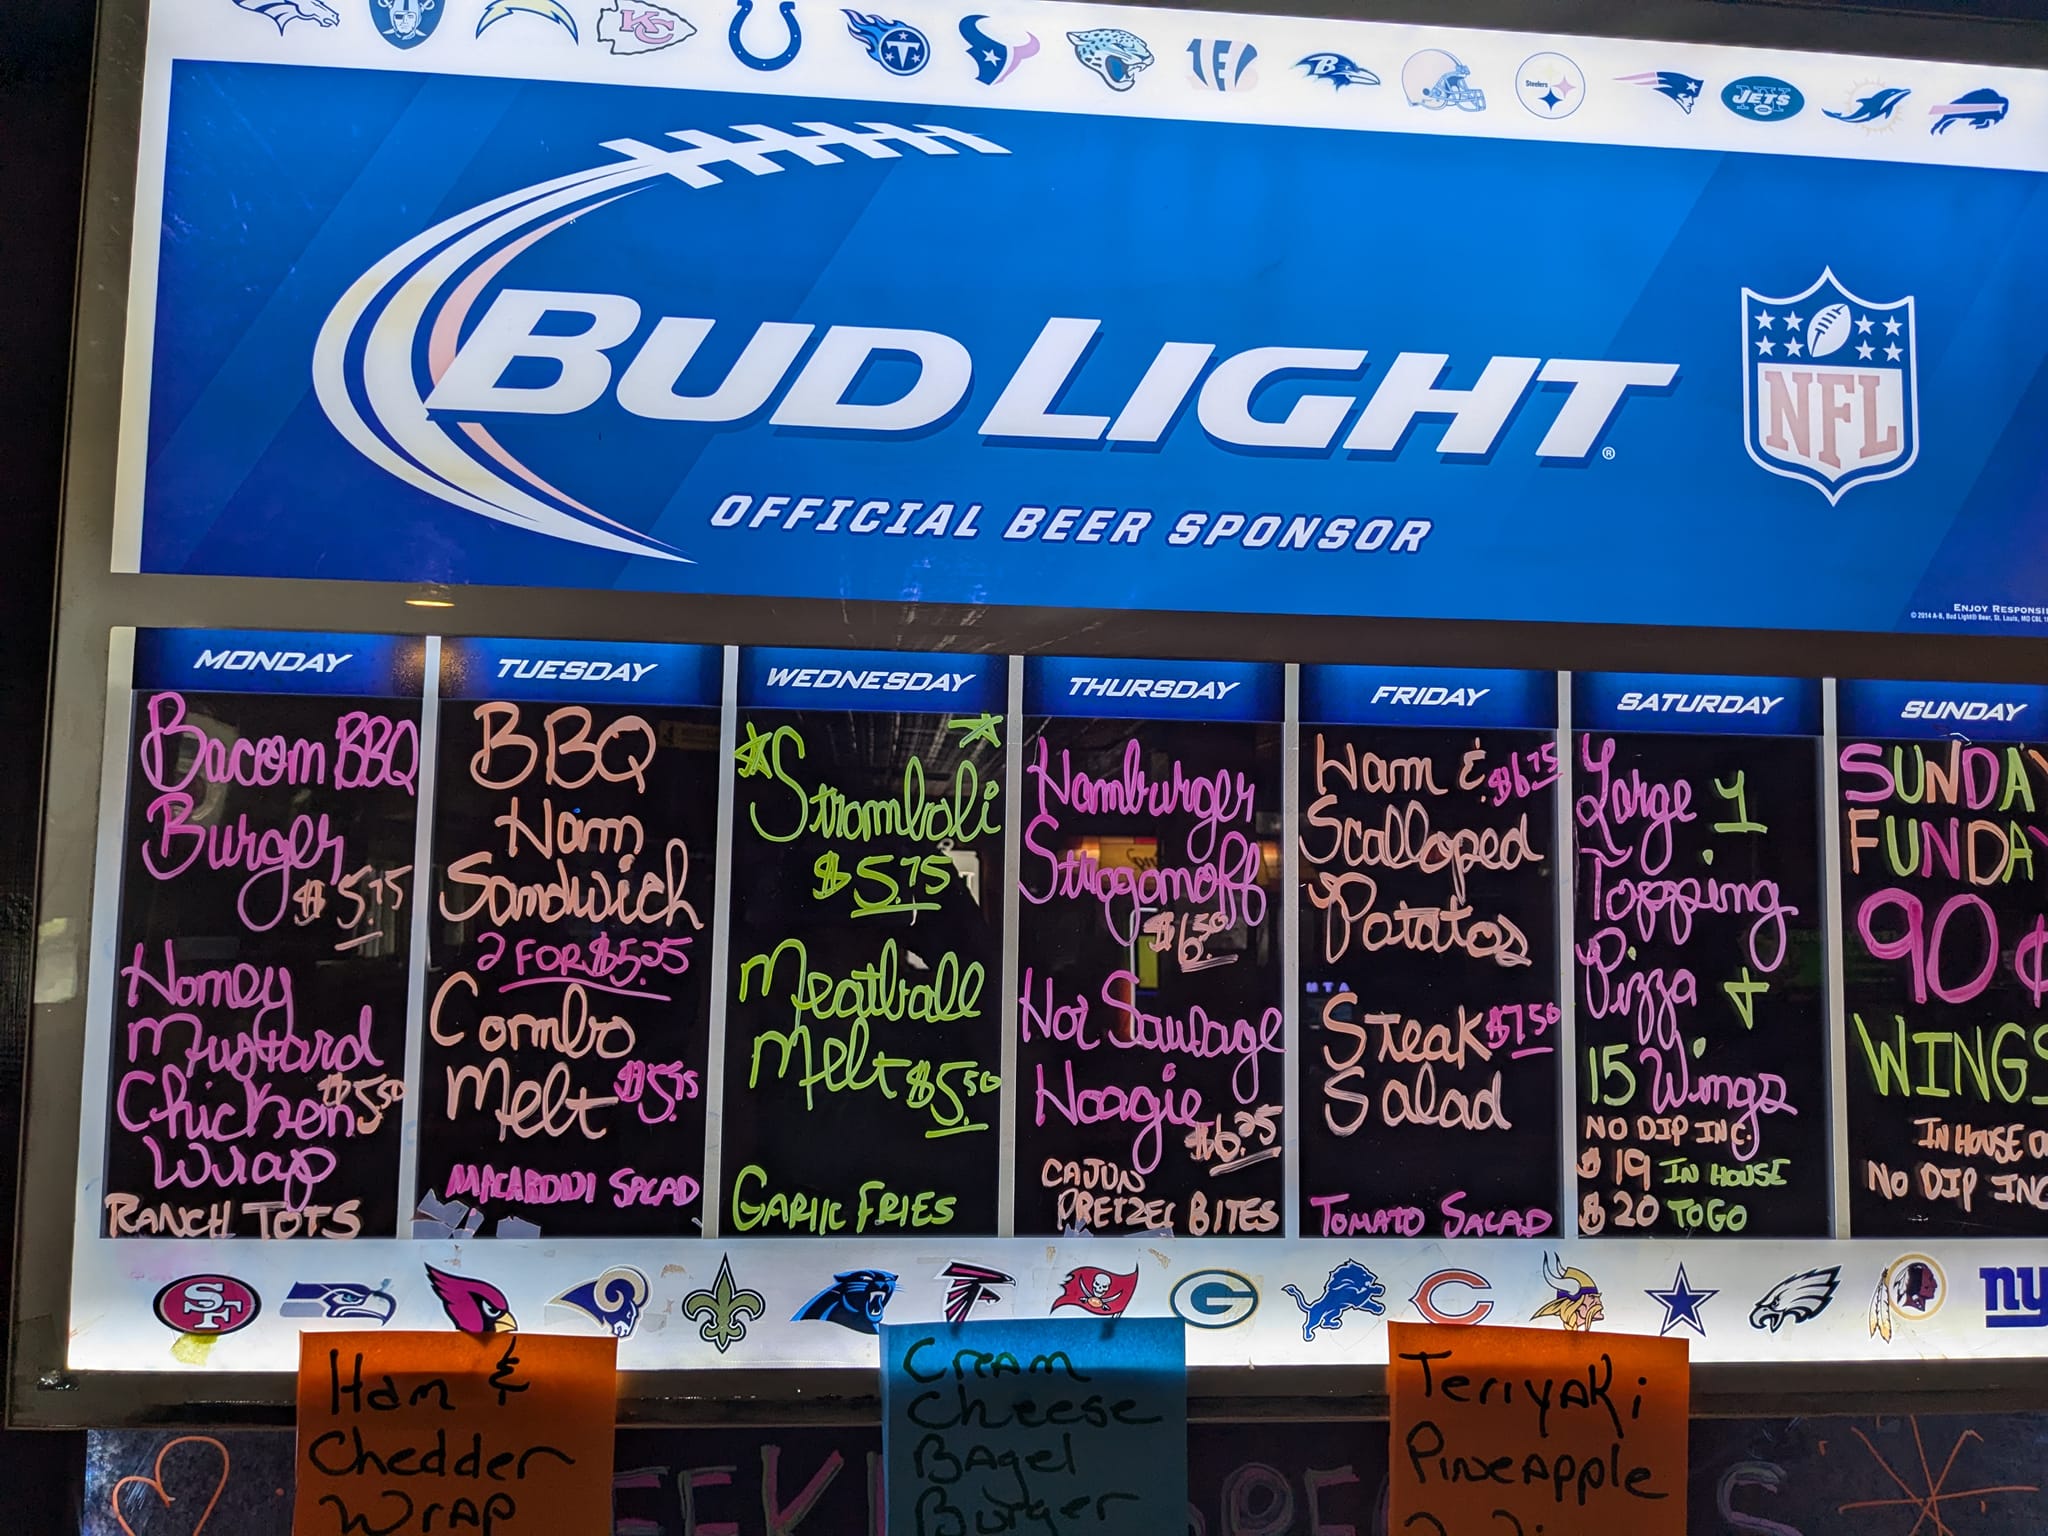 KC
BENGALS
B
Steelers
NY
JETS
BUD LIGHT®
OFFICIAL BEER SPONSOR
NFL
ENJOY RESPONSI
© 2014 A-B, Bud Light® Beer, St. Louis, MO
MONDAY
Bacon BBQ
Burger
$5.75
Honey
Mustard
Chicken $5.50
Wrap
RANCH TOTS
TUESDAY
BBQ
Ham
Sandwich
2 FOR $5.25
Combo
Melt $5.75
MACARONI SALAD
WEDNESDAY
Stromboli
$5.75
Meatball
Melt $5.50
GARLIC FRIES
THURSDAY
Hamburger
Strogonoff
$6.50
Hot Sausage
Hoagie
$6.25
CAJUN
PRETZEL BITES
FRIDAY
Ham & $6.75
Scalloped
Potatos
Steak $7.50
Salad
TOMATO SALAD
SATURDAY
Large 1
Topping
Pizza +
15 Wings
NO DIP INC.
$19 IN HOUSE
$20 TO GO
SUNDAY
SUNDAY
FUNDAY
90¢
WINGS
IN HOUSE O
NO DIP INC
SF
G
C
ny
Ham &
Chedder
Wrap
Cream
Cheese
Bagel
Burger
Teriyaki
Pineapple